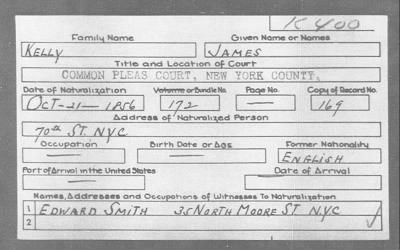 K400
Family Name Given Name or Names
KELLY JAMES
Title and Location of Court
COMMON PLEAS COURT, NEW YORK COUNTY.
Date of Naturalization Volume or Bundle No. Page No. Copy of Record No.
OCT-21-1856 172 — 169
Address of Naturalized Person
70th ST. NYC
Occupation Birth Date or Age Former Nationality
— — ENGLISH
Port of Arrival in the United States Date of Arrival
— —
Names, Addresses and Occupations of Witnesses To Naturalization
1 EDWARD SMITH 35 NORTH MOORE ST NYC
2